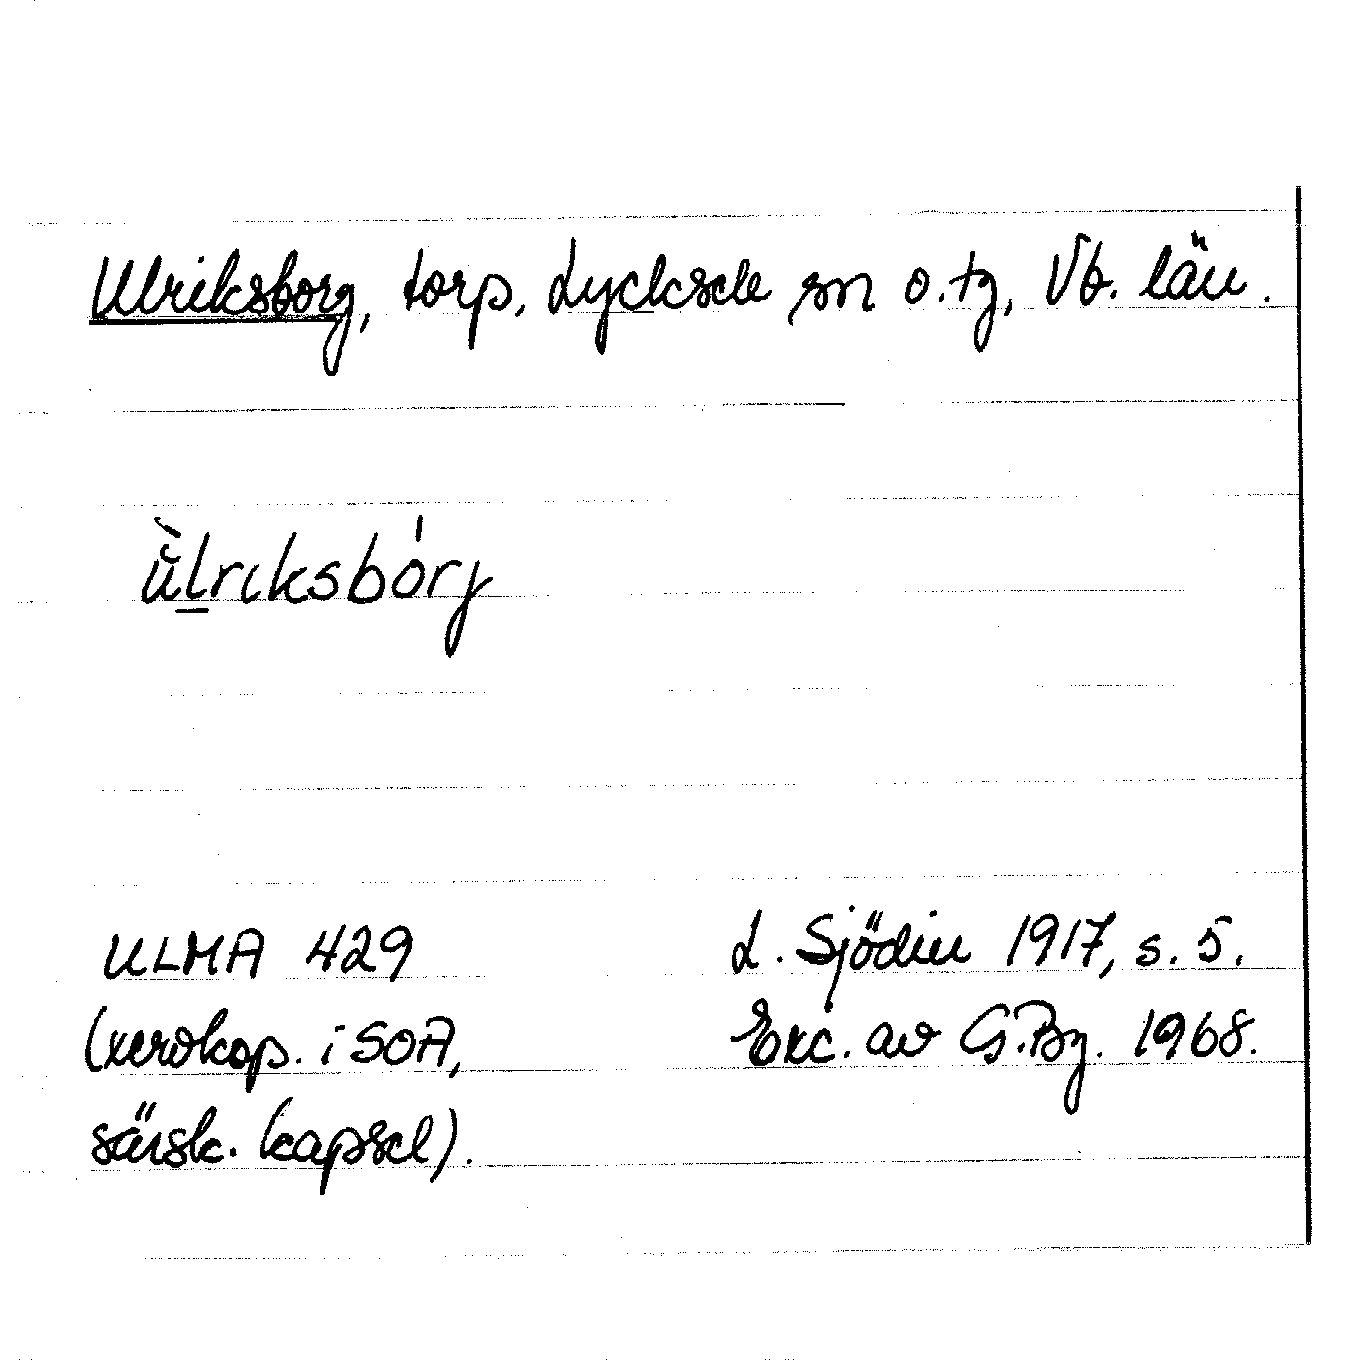 Ulriksborg, torp, Lycksele sn o. tg, Vb. län.
ŭ̀l̲rıksbórj
ULMA 429
(xerokop. i SOA,
särsk. kapsel).
L. Sjödin 1917, s. 5.
Exc. av G.Bg. 1968.